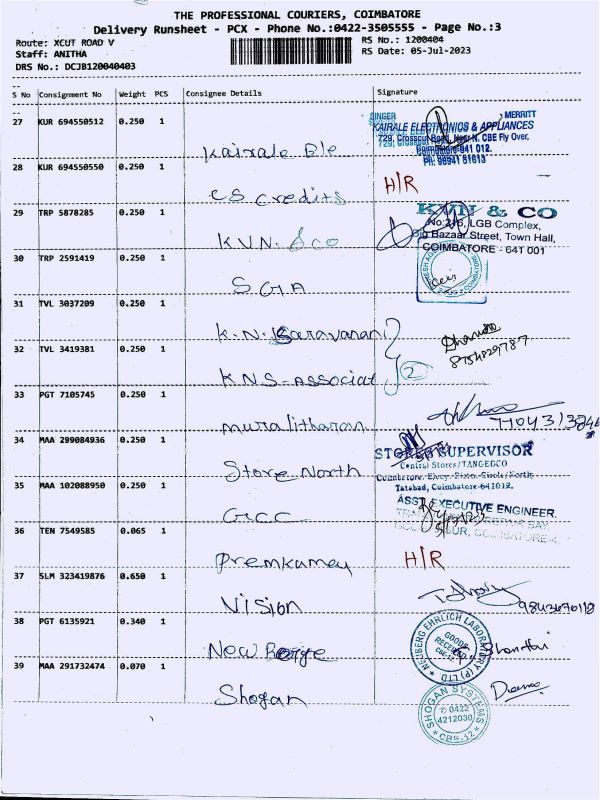 THE PROFESSIONAL COURIERS, COIMBATORE
Delivery Runsheet - PCX - Phone No.:0422-3505555 - Page No.:3
Route: XCUT ROAD V RS No.: 1200404
Staff: ANITHA RS Date: 05-Jul-2023
DRS No.: DCJB120040403
S No Consignment No Weight PCS Consignee Details Signature
27 KUR 694550512 0.250 1
SINGER MERRITT
KAIRALE ELECTRONICS & APPLIANCES
729, Crosscut Road, Near N. CBE Fly Over,
Coimbatore-641 012.
Kairale Ele
28 KUR 694550550 0.250 1
CS Credits H/R
29 TRP 5878285 0.250 1
KVN & CO
LGB Complex,
Big Bazaar Street, Town Hall,
COIMBATORE - 641 001
K.V.N. & co
30 TRP 2591419 0.250 1
SGA
31 TVL 3037209 0.250 1
K.N. Saravanan
8754829787
32 TVL 3419381 0.250 1
KNS-Associat 2
33 PGT 7105745 0.250 1
muralitharan
34 MAA 299084936 0.250 1
STORES SUPERVISOR
Central Stores/TANGEDCO
Coimbatore Elecy. Distn. Circle/North
Tatabad, Coimbatore-641012.
Store North
35 MAA 102088950 0.250 1
ASST EXECUTIVE ENGINEER.
COIMBATORE-4
GCC
36 TEN 7549585 0.065 1
Premkumey H/R
37 SLM 323419876 0.650 1
Vision 9843670118
38 PGT 6135921 0.340 1
NEUBERG EHRLICH LABORATORY (P) LTD
GOODS
RECEIVED
New Berge
39 MAA 291732474 0.070 1
Shogan
SHOGAN SYSTEMS
0422
4212030
CBE-12